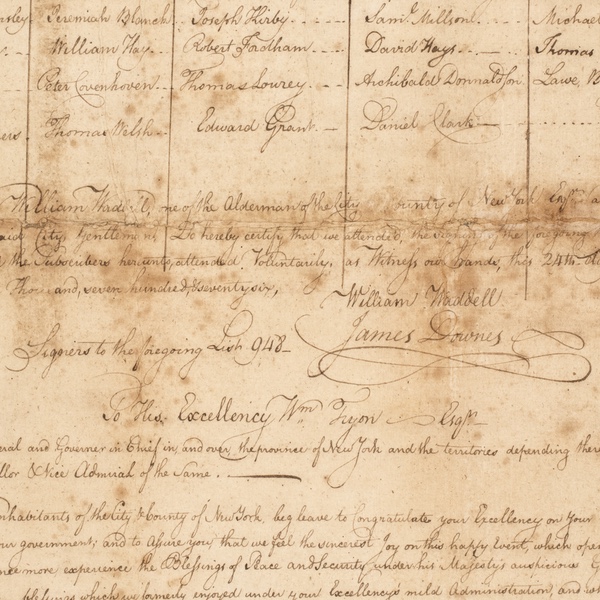 Jeremiah Blanck Joseph Kirby Saml. Millson Michael
William Hay Robert Fordham David Hays Thomas
Peter Covenhoven Thomas Lowrey Archibald Donnaldson Lawe
Thomas Welsh Edward Grant Daniel Clark
William Waddell, one of the Alderman of the City County of New York
City, Gentlemen; Do hereby certify, that we attended, the of the foregoing
the Subscribers hereunto, attended Voluntarily, as Witness our hands, this 24th
Thousand, seven hundred, & seventy six,
William Waddell
James Downes
Signers to the foregoing List 948
To His Excellency Wm Tryon Esqr
and Governor in Chief in, and over, the province of New York and the territories depending
& Vice Admiral of the Same.
Inhabitants of the City & County of New York, beg leave to Congratulate your Excellency on Your
government; and to Assure you, that we feel the sincerest Joy on this happy Event, which
more experience the Blessings of Peace and Security under his Majesty's auspicious
which we formerly enjoyed under your Excellency's mild Administration, and